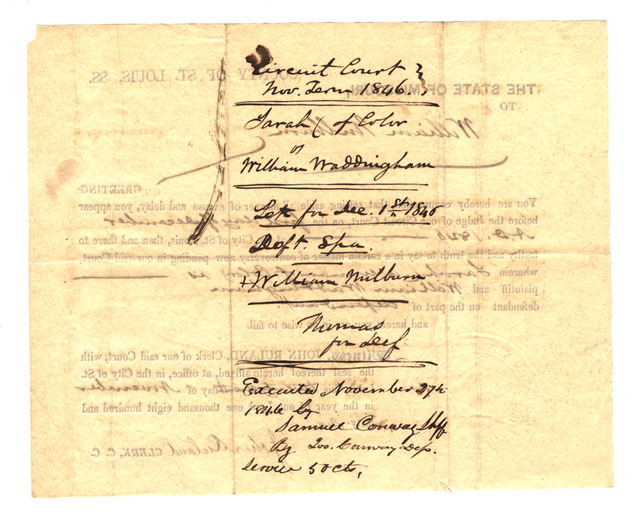 Circuit Court
Nov. Term 1846.
Sarah (of Color
vs
William Waddingham
Set for Dec. 1st 1846
Deft. Spa.
+ William Milburn
Thomas
for Def
Executed November 27th
1846 by
Samuel Conway Shff
By Jos. Conway Dep.
Service 50 cts,
COUNTY OF ST. LOUIS, SS.
THE STATE OF MISSOURI
TO
William Milburn
GREETING:
You are hereby
and delay, you appear
before the Judge of our Circuit Court, on the
December
A.D. 1846
City of St. Louis, then and there to
testify and the truth to say in a certain matter of controversy now pending in our said Court,
wherein Sarah
plaintiff and William Waddingham
defendant on the part of defendant
and hereof
wise to fail.
Witness, JOHN RULAND, Clerk of our said Court, with
the seal thereof hereto affixed, at office, in the City of St.
day of November
in the year
one thousand eight hundred and
John Ruland CLERK, C. C.